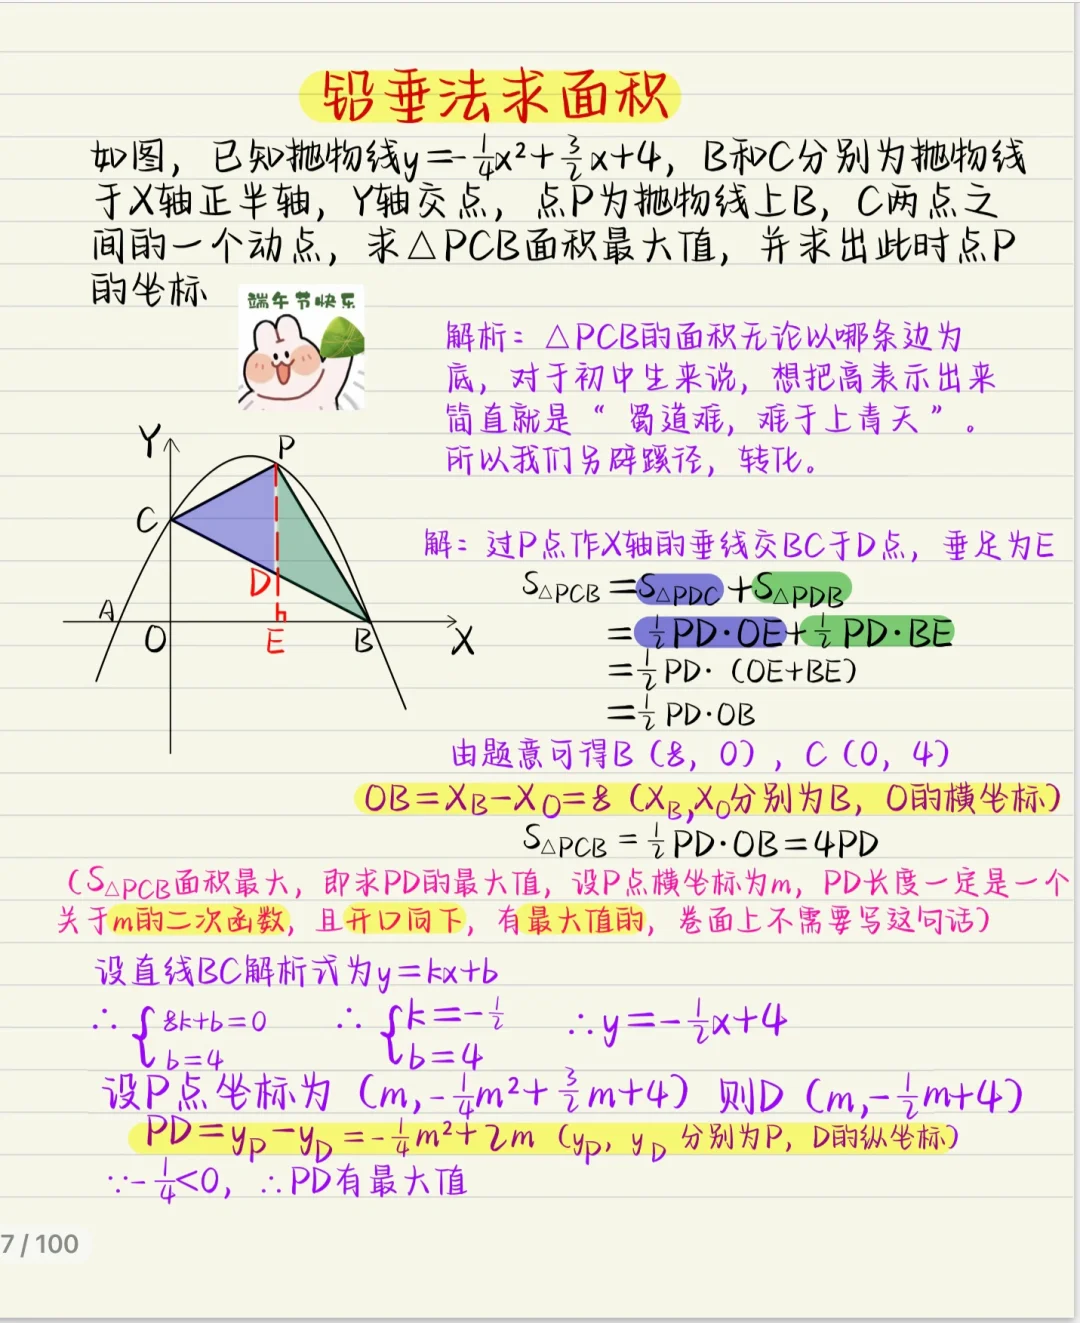 铅垂法求面积
如图，已知抛物线y=-1/4x²+3/2x+4，B和C分别为抛物线
于X轴正半轴，Y轴交点，点P为抛物线上B，C两点之
间的一个动点，求△PCB面积最大值，并求出此时点P
的坐标
端午节快乐
解析：△PCB的面积无论以哪条边为
底，对于初中生来说，想把高表示出来
简直就是“蜀道难，难于上青天”。
所以我们另辟蹊径，转化。
Y
P
C
D
A
O
E
B
X
解：过P点作X轴的垂线交BC于D点，垂足为E
S△PCB=S△PDC+S△PDB
=1/2PD·OE+1/2PD·BE
=1/2PD·（OE+BE）
=1/2PD·OB
由题意可得B（8，0），C（0，4）
OB=XB-XO=8（XB,XO分别为B，O的横坐标）
S△PCB=1/2PD·OB=4PD
（S△PCB面积最大，即求PD的最大值，设P点横坐标为m，PD长度一定是一个
关于m的二次函数，且开口向下，有最大值的，卷面上不需要写这句话）
设直线BC解析式为y=kx+b
∴{8k+b=0 ∴{k=-1/2 ∴y=-1/2x+4
b=4 b=4
设P点坐标为（m,-1/4m²+3/2m+4）则D（m,-1/2m+4）
PD=yP-yD=-1/4m²+2m（yP，yD分别为P，D的纵坐标）
∵-1/4<0，∴PD有最大值
7/100